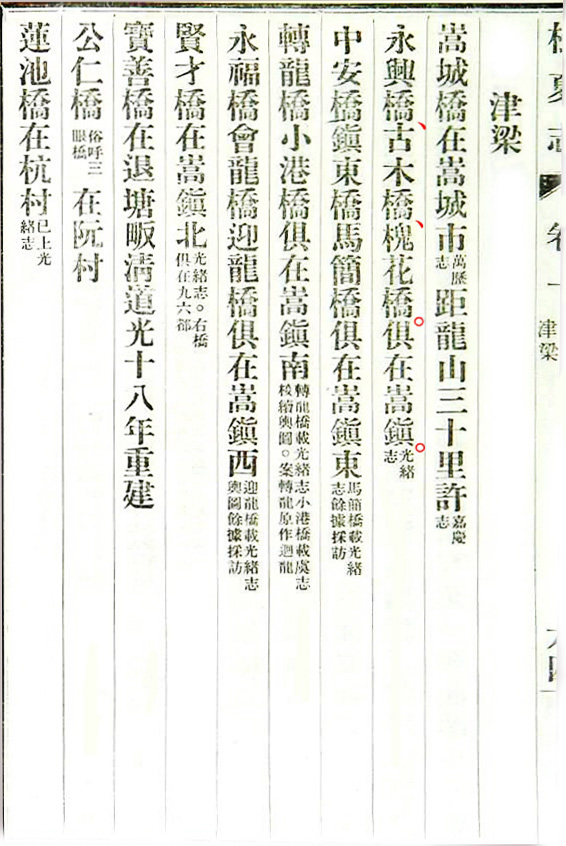 夏志
卷一
津梁
津梁
嵩城橋在嵩城市萬歷志距龍山三十里許嘉慶志
永興橋、古木橋、槐花橋。俱在嵩鎭。光緒志
中安橋鎭東橋馬簡橋俱在嵩鎭東馬簡橋載光緒志餘據採訪
轉龍橋小港橋俱在嵩鎭南轉龍橋載光緒志小港橋載虞志校續輿圖○案轉龍原作迴龍
永福橋會龍橋迎龍橋俱在嵩鎭西迎龍橋載光緒志輿圖餘據採訪
賢才橋在嵩鎭北光緒志○右橋俱在九六都
寶善橋在退塘畈淸道光十八年重建
公仁橋俗呼三眼橋在阮村
蓮池橋在杭村已上光緒志